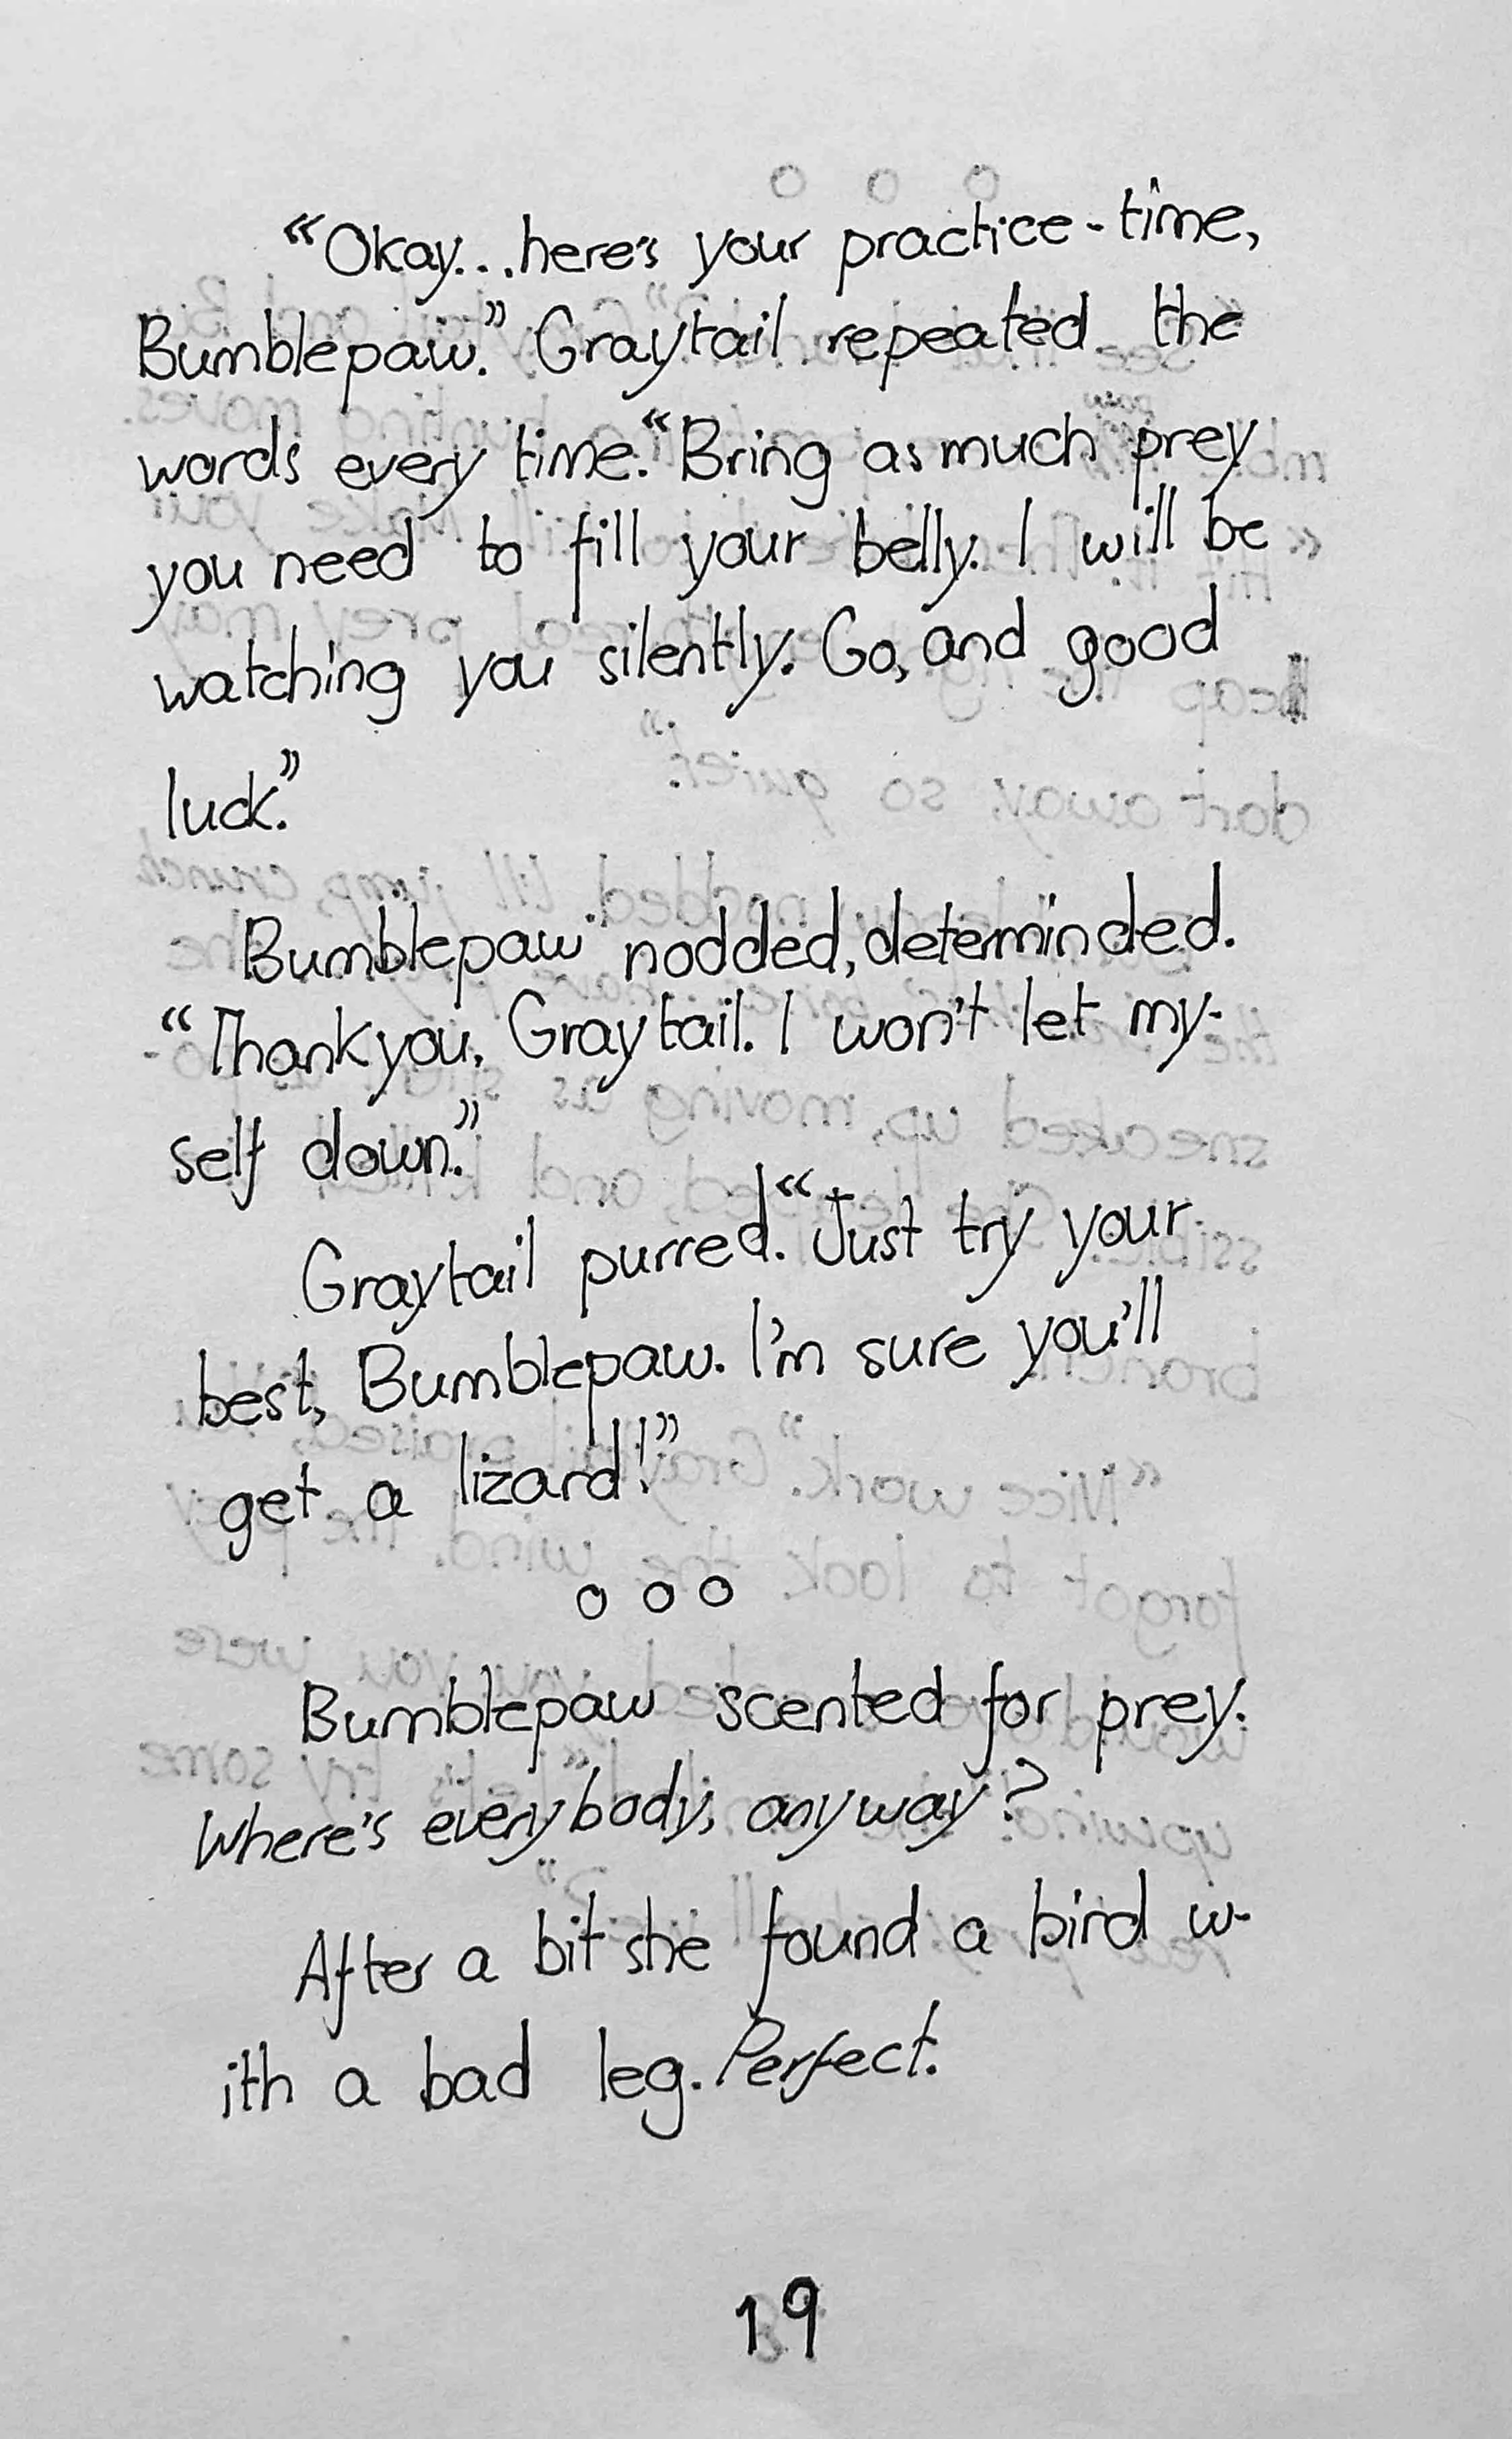 “Okay...here's your practice-time,
Bumblepaw.” Graytail repeated the
words every time. “Bring as much prey
you need to fill your belly. I will be
watching you silently. Go, and good
luck.”
Bumblepaw nodded, determinded.
“Thank you, Graytail. I won't let my-
self down.”
Graytail purred. “Just try your
best, Bumblepaw. I'm sure you'll
get a lizard!”
o o o
Bumblepaw scented for prey.
Where's everybody, anyway?
After a bit she found a bird w-
ith a bad leg. Perfect.
19